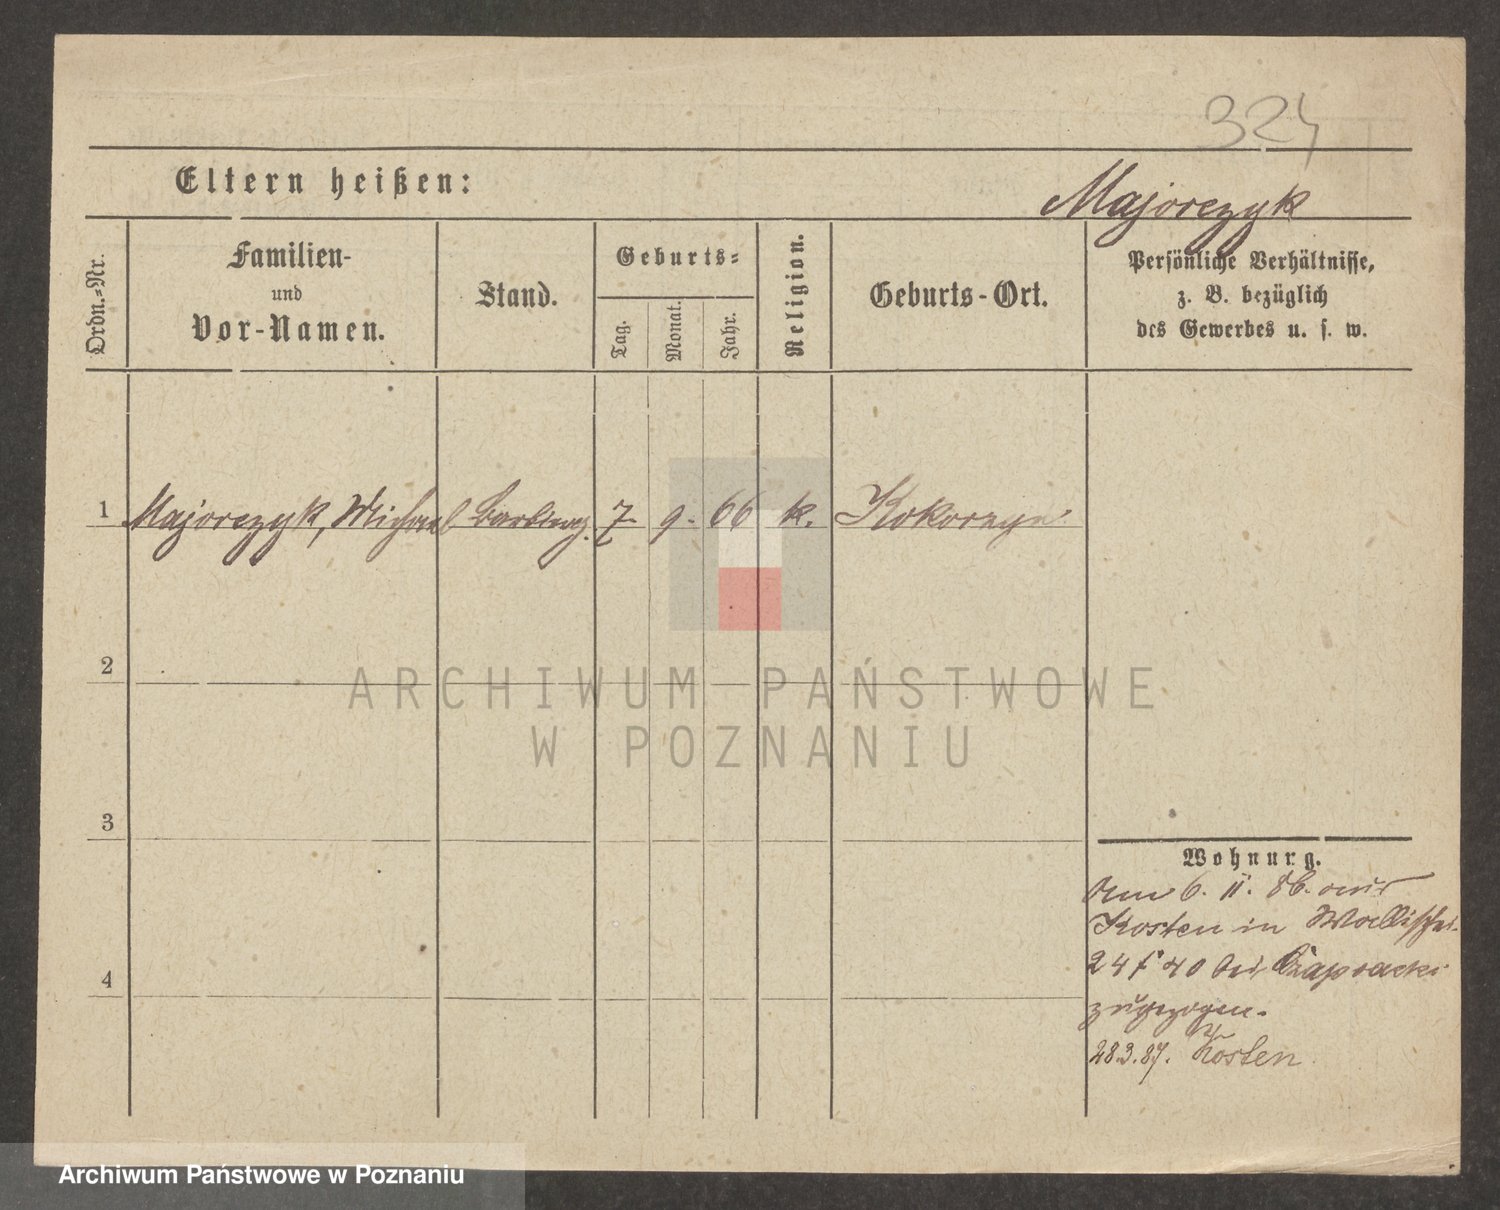 324
Eltern heißen:
Majorczyk
Ordn.-Nr.
Familien-
und
Vor-Namen.
Stand.
Geburts-
Tag.
Monat.
Jahr.
Religion.
Geburts-Ort.
Persönliche Verhältnisse,
z. B. bezüglich
des Gewerbes u. s. w.
1 Majorczyk, Michael 7. 9. 66 k. Kokorzyn
2
ARCHIWUM PAŃSTWOWE
W POZNANIU
3
Wohnung.
Am 6. 11. 86. aus
Kosten in Wallischei
24 bei Czapracki
4
zugezogen.
28.3.87. Kosten
Archiwum Państwowe w Poznaniu